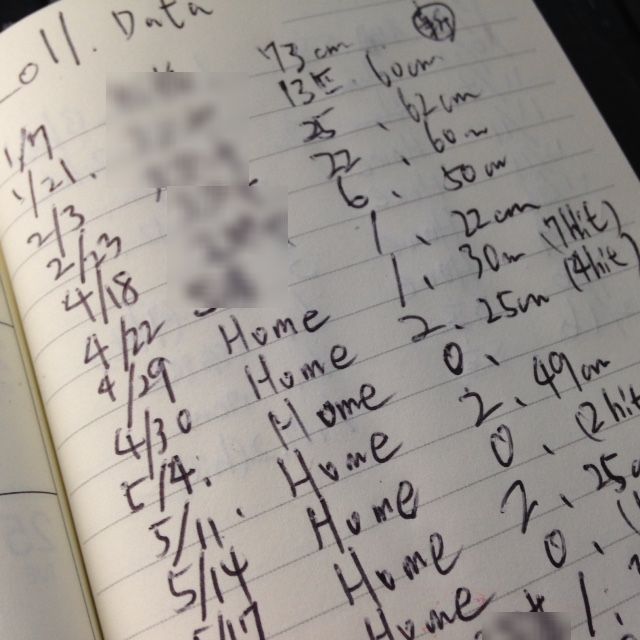 011. Data
1/7 73cm
1/21. 13匹 60cm
2/3 25、62cm
2/23 22、60cm
4/18 6、50cm
4/22 1、22cm
4/29 Home 1、30cm (7hit)
4/30 Home 2、25cm (4hit)
5/4. Home 0、
5/11. Home 2、49cm
5/14 Home 0、(2hit
5/17 Home 2、25c
Home 0、(1
Home 1、